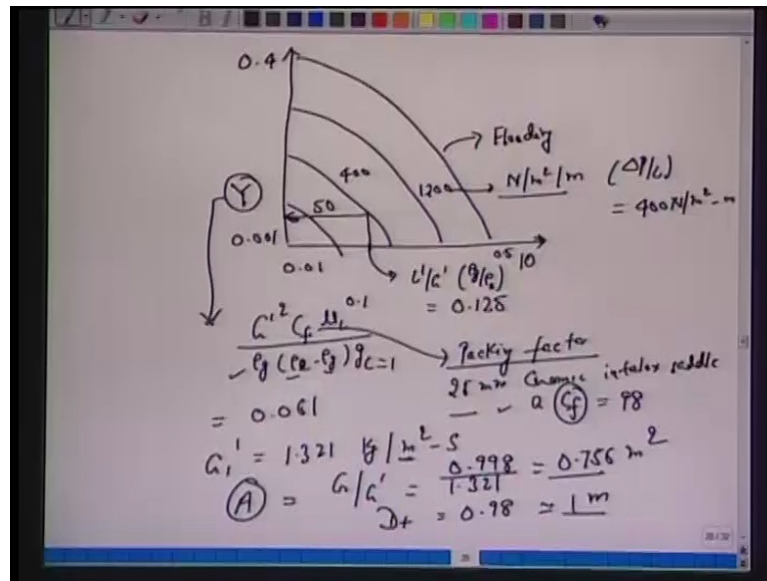 0.4
Flooding
400
1200 → N/m²/m (ΔP/L)
= 400 N/m²-m
Y
50
0.001
0.01
0.5 10
L'/G' (ρg/ρL)
= 0.125
G'² Cf μL^0.1
ρg (ρl-ρg) gc=1
→ Packing factor
25 mm Ceramic intalox saddle
= 0.061
a Cf = 98
G1' = 1.321 kg/m²-s
A = G/G' = 0.998/1.321 = 0.756 m²
Dt = 0.98 ≃ 1 m